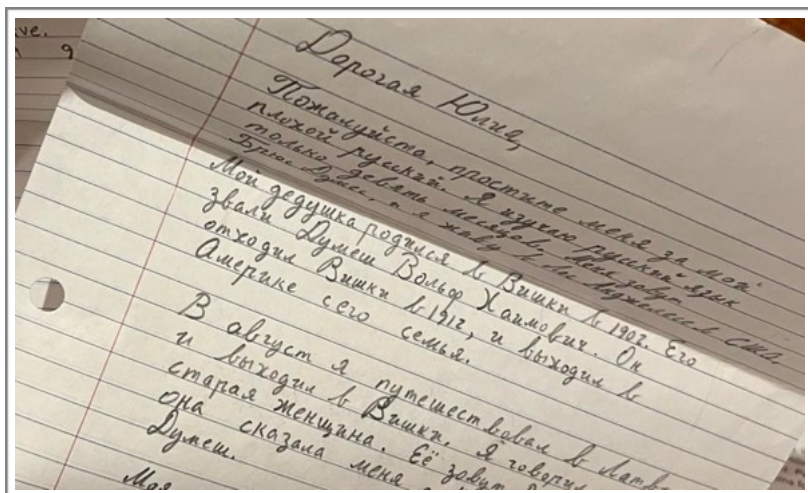 ve.
9
Дорогая Юлия,
Пожалуйста, простите меня за мой
плохой русский. Я изучаю русский язык
только девять месяцов. Меня зовут
Брюс Думес, и я живу в Лос Анджелисе, США.
Мой дедушка родился в Вишки в 1902. Его
звали Думеш Вольф Хаимович. Он
отходил Вишки в 1912, и выходил в
Америке с его семья.
В август я путешествовал в
и выходил в Вишки. Я говорил
старая женщина. Её зовут
она сказала меня
Думеш.
Моя